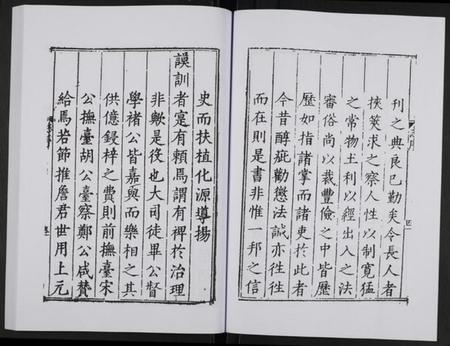 刊之典良已勤矣令長人者
挾筴求之察人性以制寬猛
之常物土利以經出入之法
審俗尚以裁豐儉之中皆歷
歷如指諸掌而諸吏於此者
今昔醇疵勸懲法誡亦徃徃
而在則是書非惟一邦之信
史而扶植化源導揚
謨訓者寔有賴焉謂有裨於治理
非歟是役也大司徒畢公督
學禇公皆嘉與而樂相之其
供億鋟梓之費則前撫臺宋
公撫臺胡公臺察鄭公咸賛
給焉若節推詹君世用上元